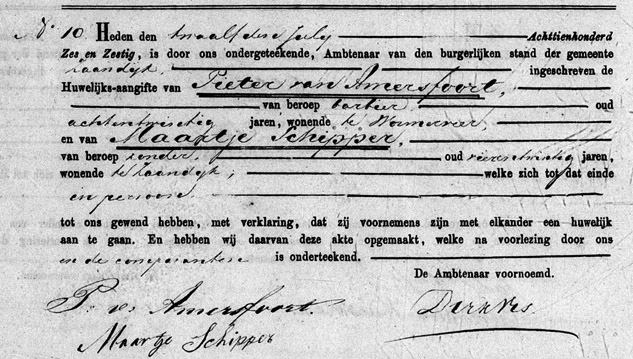 No 10. Heden den twaalfden July Achttienhonderd
Zes en Zestig, is door ons ondergeteekende, Ambtenaar van den burgerlijken stand der gemeente
Zaandijk, ingeschreven de
Huwelijks-aangifte van Pieter van Amersfoort,
van beroep barbier oud
achtentwintig jaren, wonende te Wormerveer,
en van Maartje Schipper,
van beroep zonder, oud vierentwintig jaren,
wonende te Zaandijk, welke zich tot dat einde
in persoon
tot ons gewend hebben, met verklaring, dat zij voornemens zijn met elkander een huwelijk
aan te gaan. En hebben wij daarvan deze akte opgemaakt, welke na voorlezing door ons
en de comparanten is onderteekend.
De Ambtenaar voornoemd.
P. v. Amersfoort.
Maartje Schipper